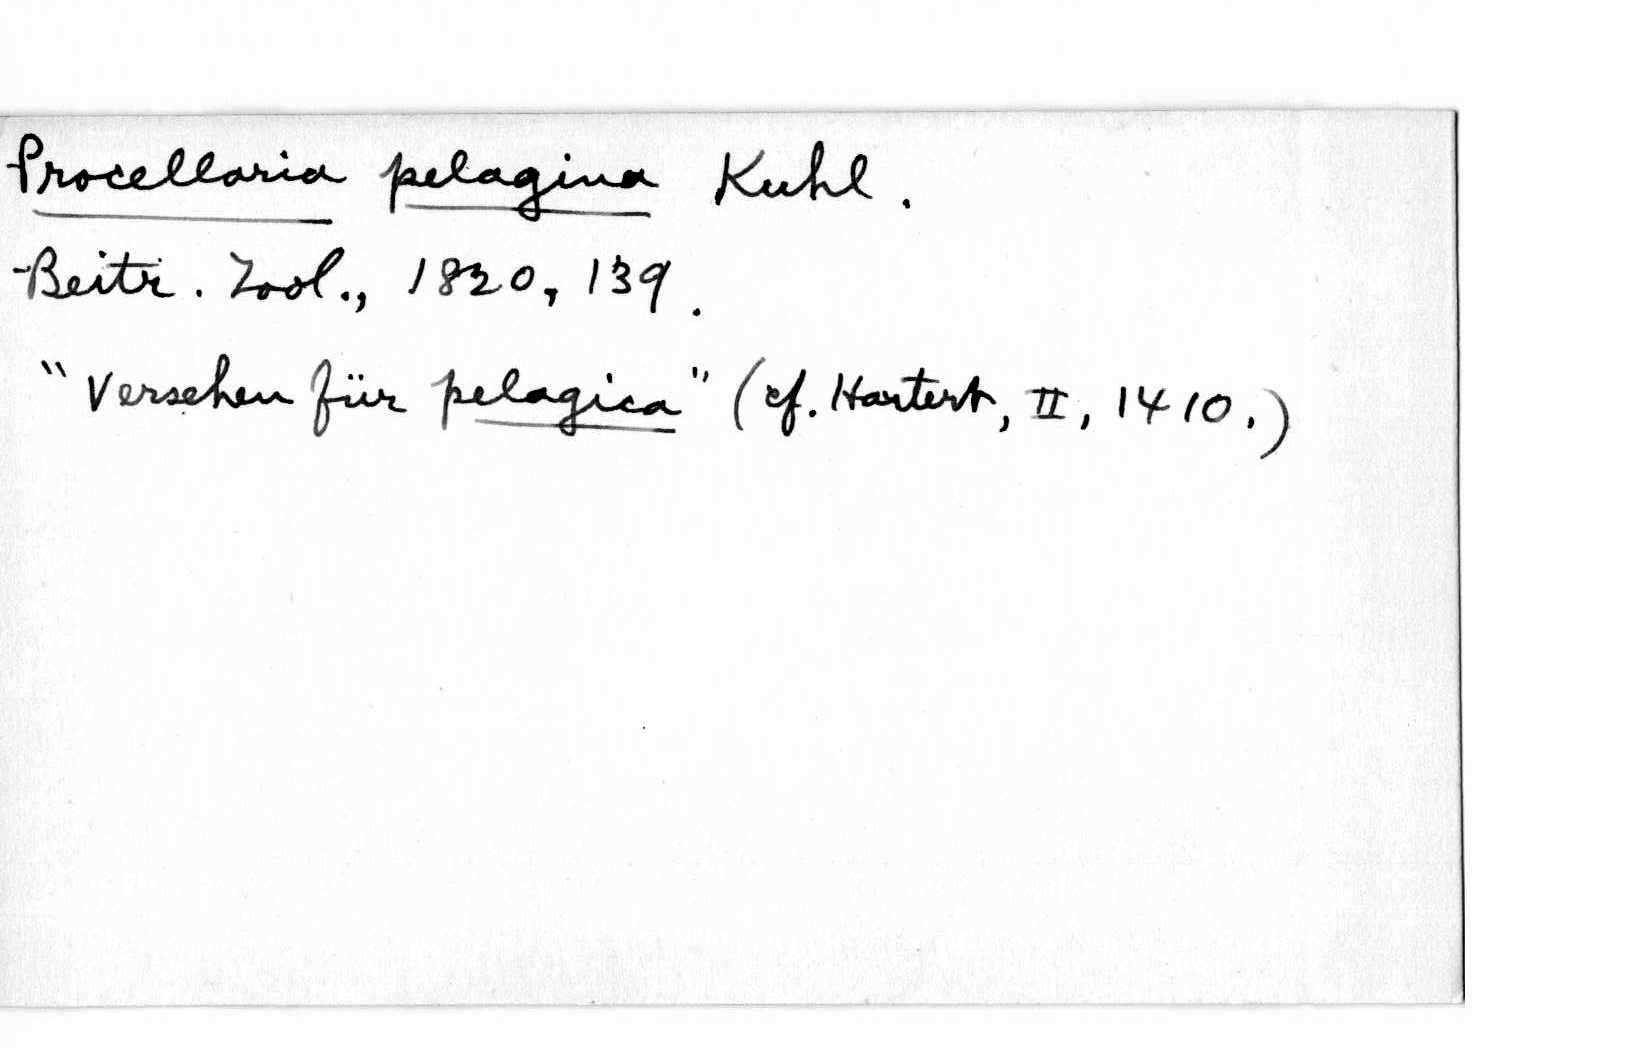 Procellaria pelagina Kuhl.
Beitr. Zool., 1820, 139.
"Versehen für pelagica" (cf. Hartert, II, 1410.)